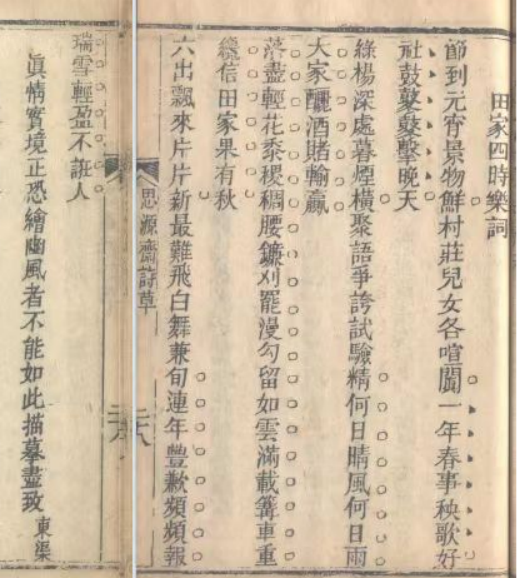 田家四時樂詞
節到元宵景物鮮村莊兒女各喧闐一年春事秧歌好
社鼓鼕鼕擊晚天
綠楊深處暮煙橫聚語爭誇試驗精何日晴風何日雨
大家釃酒賭輸贏
落盡輕花黍稷稠腰鐮刈罷漫勾留如雲滿載篝車重
纔信田家果有秋
六出飄來片片新最難飛白舞兼旬連年豐歉頻頻報
思源齋詩草
二十八
瑞雪輕盈不誑人
眞情實境正恐繪豳風者不能如此描摹盡致 東渠